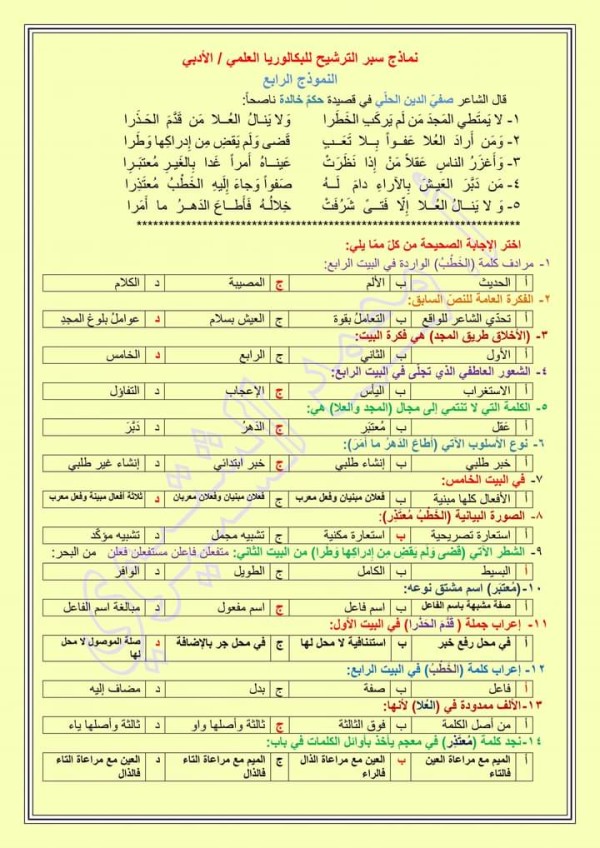 نماذج سبر الترشيح للبكالوريا العلمي / الأدبي
النموذج الرابع
قال الشاعر صفيّ الدين الحلّي في قصيدة حكمٌ خالدة ناصحاً:
١- لا يَمتَطي المَجدَ مَن لَم يَركَبِ الخَطَرا وَلا يَنالُ العُلا مَن قَدَّمَ الحَذَرا
٢- وَمَن أَرادَ العُلا عَفواً بِلا تَعَبٍ قَضى وَلَم يَقضِ مِن إِدراكِها وَطَرا
٣- وَأَغزَرُ الناسِ عَقلاً مَنْ إِذا نَظَرَتْ عَيناهُ أَمراً غَدا بِالغَيرِ مُعتَبِرا
٤- مَن دَبَّرَ العَيشَ بِالآراءِ دامَ لَهُ صَفواً وَجاءَ إِلَيهِ الخَطْبُ مُعتَذِرا
٥- وَ لا يَنالُ العُلا إِلّا فَتىً شَرُفَتْ خِلالُهُ فَأَطاعَ الدَهرُ ما أَمَرا
************************************************************
اختر الإجابة الصحيحة من كلّ ممّا يلي:
١- مرادف كلمة (الخَطْبُ) الواردة في البيت الرابع:
أ الحديث ب الألم ج المصيبة د الكلام
٢- الفكرة العامة للنصّ السابق:
أ تحدّي الشاعر للواقع ب التعاملُ بقوة ج العيش بسلام د عواملُ بلوغ المجدِ
٣- (الأخلاق طريق المجد) هي فكرة البيت:
أ الأول ب الثاني ج الرابع د الخامس
٤- الشعور العاطفي الذي تجلّى في البيت الرابع:
أ الاستغراب ب اليأس ج الإعجاب د التفاؤل
٥- الكلمة التي لا تنتمي إلى مجال (المجد والعلا) هي:
أ عَقل ب مُعتَبَر ج الدَهرُ د دَبَّرَ
٦- نوع الأسلوب الآتي (أَطاعَ الدَهرُ ما أَمَرَ):
أ خبر طلبي ب إنشاء طلبي ج خبر ابتدائي د إنشاء غير طلبي
٧- في البيت الخامس:
أ الأفعال كلها مبنية ب فعلان مبنيان وفعل معرب ج فعلان مبنيان وفعلان معربان د ثلاثة أفعال مبينة وفعل معرب
٨- الصورة البيانية (الخَطْبُ مُعتَذِر):
أ استعارة تصريحية ب استعارة مكنية ج تشبيه مجمل د تشبيه مؤكّد
٩- الشطر الآتي (قَضى وَلَم يَقضِ مِن إِدراكِها وَطَرا) من البيت الثاني: متفعلن فاعلن مستفعلن فعلن من البحر:
أ البسيط ب الكامل ج الطويل د الوافر
١٠- (مُعتَبَر) اسم مشتق نوعه:
أ صفة مشبهة باسم الفاعل ب اسم فاعل ج اسم مفعول د مبالغة اسم الفاعل
١١- إعراب جملة ( قَدَّمَ الحَذَرا) في البيت الأول:
أ في محل رفع خبر ب استنافية لا محل لها ج في محل جر بالإضافة د صلة الموصول لا محل لها
١٢- إعراب كلمة (الخَطْبُ) في البيت الرابع:
أ فاعل ب صفة ج بدل د مضاف إليه
١٣- الألف ممدودة في (العُلا) لأنها:
أ من أصل الكلمة ب فوق الثالثة ج ثالثة وأصلها واو د ثالثة وأصلها ياء
١٤- نجد كلمة (مُعتَذِر) في معجم يأخذ بأوائل الكلمات في باب:
أ الميم مع مراعاة العين فالتاء ب العين مع مراعاة الذال فالراء ج الميم مع مراعاة التاء فالذال د العين مع مراعاة التاء فالذال